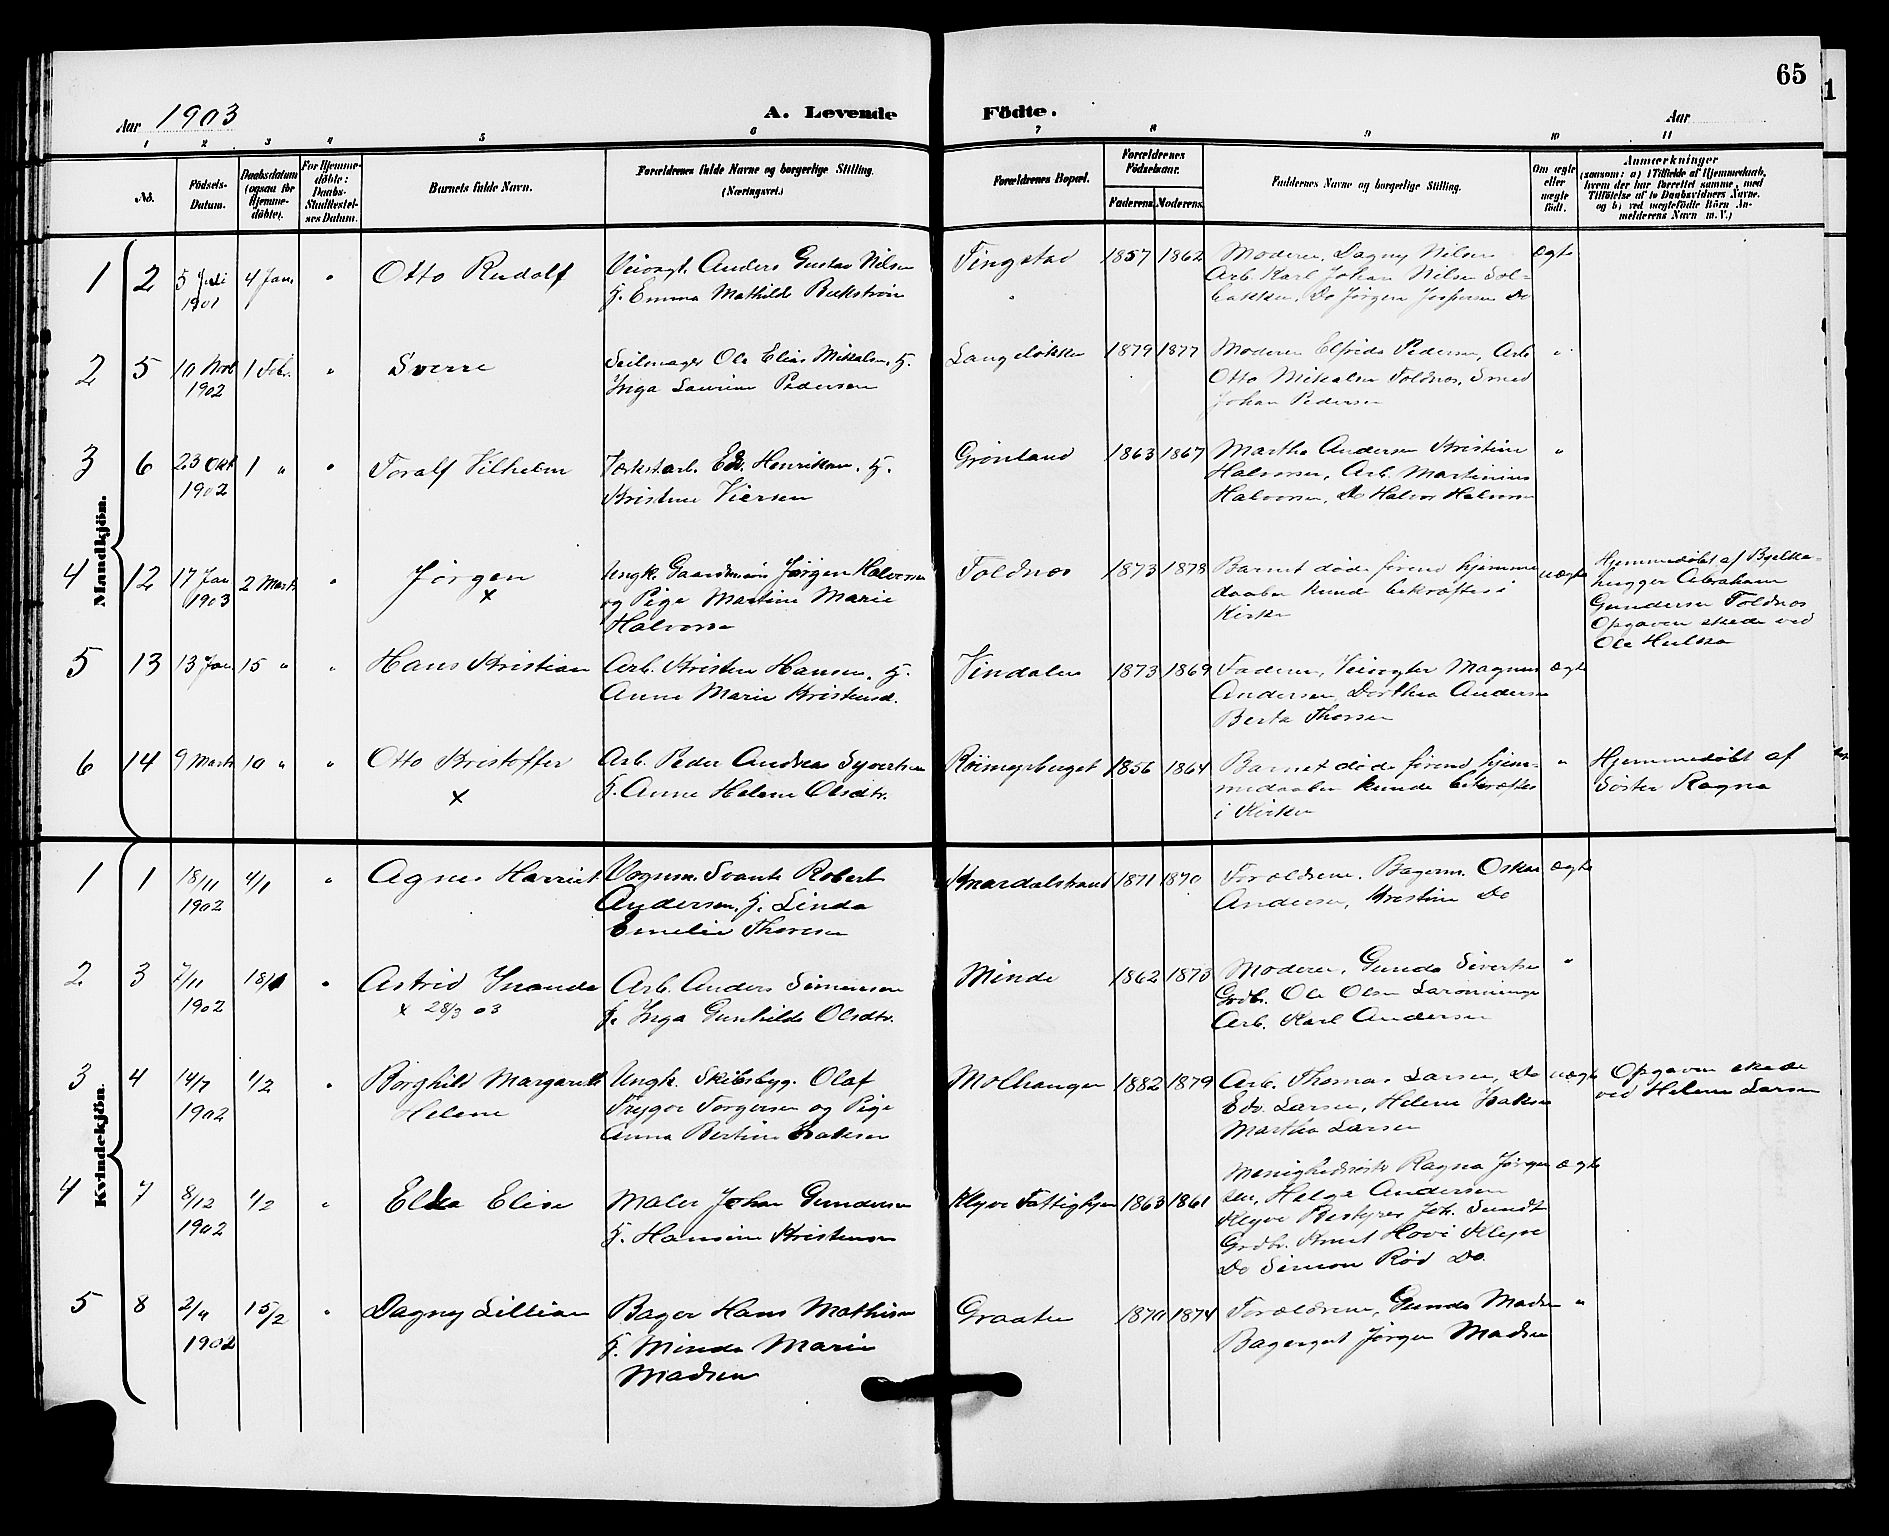 65
Aar 1903 A. Levende Födte. Aar
1 2 3 4 5 6 7 8 9 10 11
No. Födsels-Datum. Daabsdatum (ogsaa for Hjemmedöbte). For Hjemmedöbte: Daabs-Stadfæstelses Datum. Barnets fulde Navn. Forældrenes fulde Navne og borgerlige Stilling. (Næringsvei.) Forældrenes Bopæl. Forældrenes Födselsaar. Faderens. Moderens. Faddernes Navne og borgerlige Stilling. Om ægte eller uægte födt. Anmærkninger
Mandkjön.
1 2 5 Juli 1901 4 Jan. " Otto Rudolf
Veivogt. Anders Gustav Nilsen
H. Emma Mathilde Bekström
Tingstad 1857 1862
Moderen, Dagny Nilsen
Arb. Karl Johan Nilsen Sol-
bakken, Do Jørgen Jespersen Do
ægte
2 5 10 Nov 1902 1 Feb. " Sverre
Seilmager Ole Elias Mikalsen, H.
Inga Laurine Pedersen
Langeløkke 1879 1877
Moderen Elfrida Pedersen, Arb
Otto Mikalsen Foldnos, Smed
Johan Pedersen
"
3 6 23 Okt 1902 1 " " Toralf Vilhelm
Ed. Henriksen, H.
Kristine Viersen
Grønland 1863 1867
Martha Andersen Kristine
Halvorsen, Arb. Martinius
Halvorsen, Do Halvor Halvorsen
"
4 12 17 Jan 1903 2 Marts " Jørgen
x
Ungk. Jørgen Halvorsen
og Pige Martine Marie
Halvorsen
Foldnos 1873 1878
Barnet døde førend hjemme
daaben kunde bekræftes i
Kirke
uægte
Hjemmedøbt af Bjelke-
hugger Abraham
Gundersen Foldnos
Opgaven skede ved
Ole
5 13 13 Jan. 15 " " Hans Kristian
Arb. Kristen Hansen, H.
Anne Marie Kristensd.
Vindalen 1873 1869
Faderen, Veivogter Magnus
Andersen, Dorthea Andersen
Berta Thorsen
ægte
6 14 9 Marts 10 " " Otto Kristoffer
x
Arb. Peder Andreas Syvertsen
H. Anne Helene Olsdtr.
1856 1864
Barnet døde førend hjem-
medaaben kunde bekræftes
i Kirken
"
Hjemmedøbt af
Søster Ragna
Kvindekjön.
1 1 18/11 1902 4/1 " Agnes Harriet
Vognm. Svante Robert
Andersen, H. Linda
Emelie Thoresen
Knardalstrand 1871 1870
Forældrene, Bagerm. Oskar
Andersen, Kristine Do
ægte
2 3 7/11 1902 18/1 " Astrid
x 28/3 03
Arb. Anders Simensen
H. Inga Gunhilde Olsdtr.
Minde 1862 1873
Moderen, Gunda Sivertsen
Grdbr. Ole Olsen
Arb. Karl Andersen
"
3 4 14/7 1902 1/2 " Borghild Margarethe
Helene
Ungk. Skibsbyg. Olaf
Trygve Torgersen og Pige
Anna Bertine Isaksen
Molhaugen 1882 1879
Arb. Thomas Larsen, Do
Edv. Larsen, Helene Isaksen
Martha Larsen
uægte
Opgaven skede
ved Helene Larsen
4 7 8/12 1902 1/2 " Elsa Elise
Maler Johan Gundersen
H. Hansine Kristensen
Klyve Fattighjem 1863 1861
Menighedssøster Ragna Jørgen
sen, Helga Andersen
Klyve Bestyrer Joh. Sundt
Grdbr. Knut Hovi Klyve
Do Simon Rød Do
ægte
5 8 2/9 1902 15/2 " Dagny Lillian
Bager Hans Mathisen
H. Minda Marie
Madsen
Graaten 1870 1874
Forældrene, Gunda Madsen
Jørgen Madsen
"